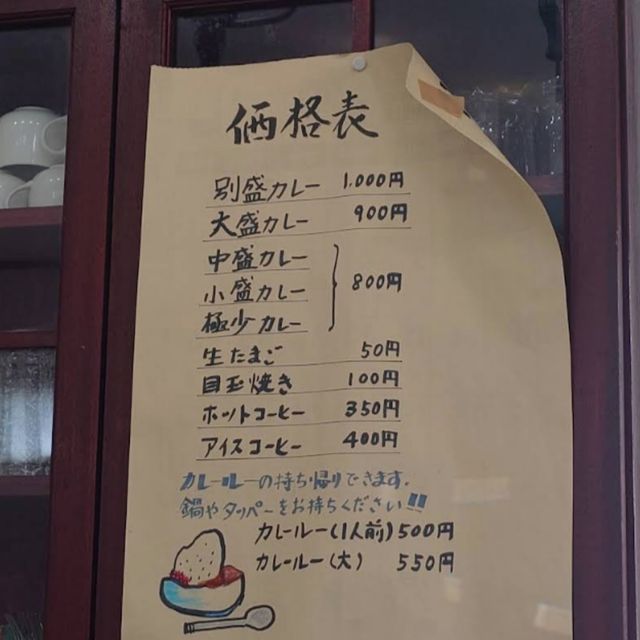 価格表
別盛カレー 1,000円
大盛カレー 900円
中盛カレー
小盛カレー 800円
極少カレー
生たまご 50円
目玉焼き 100円
ホットコーヒー 350円
アイスコーヒー 400円
カレールーの持ち帰りできます.
鍋やタッパーをお持ちください!!
カレールー(1人前)500円
カレールー(大) 550円